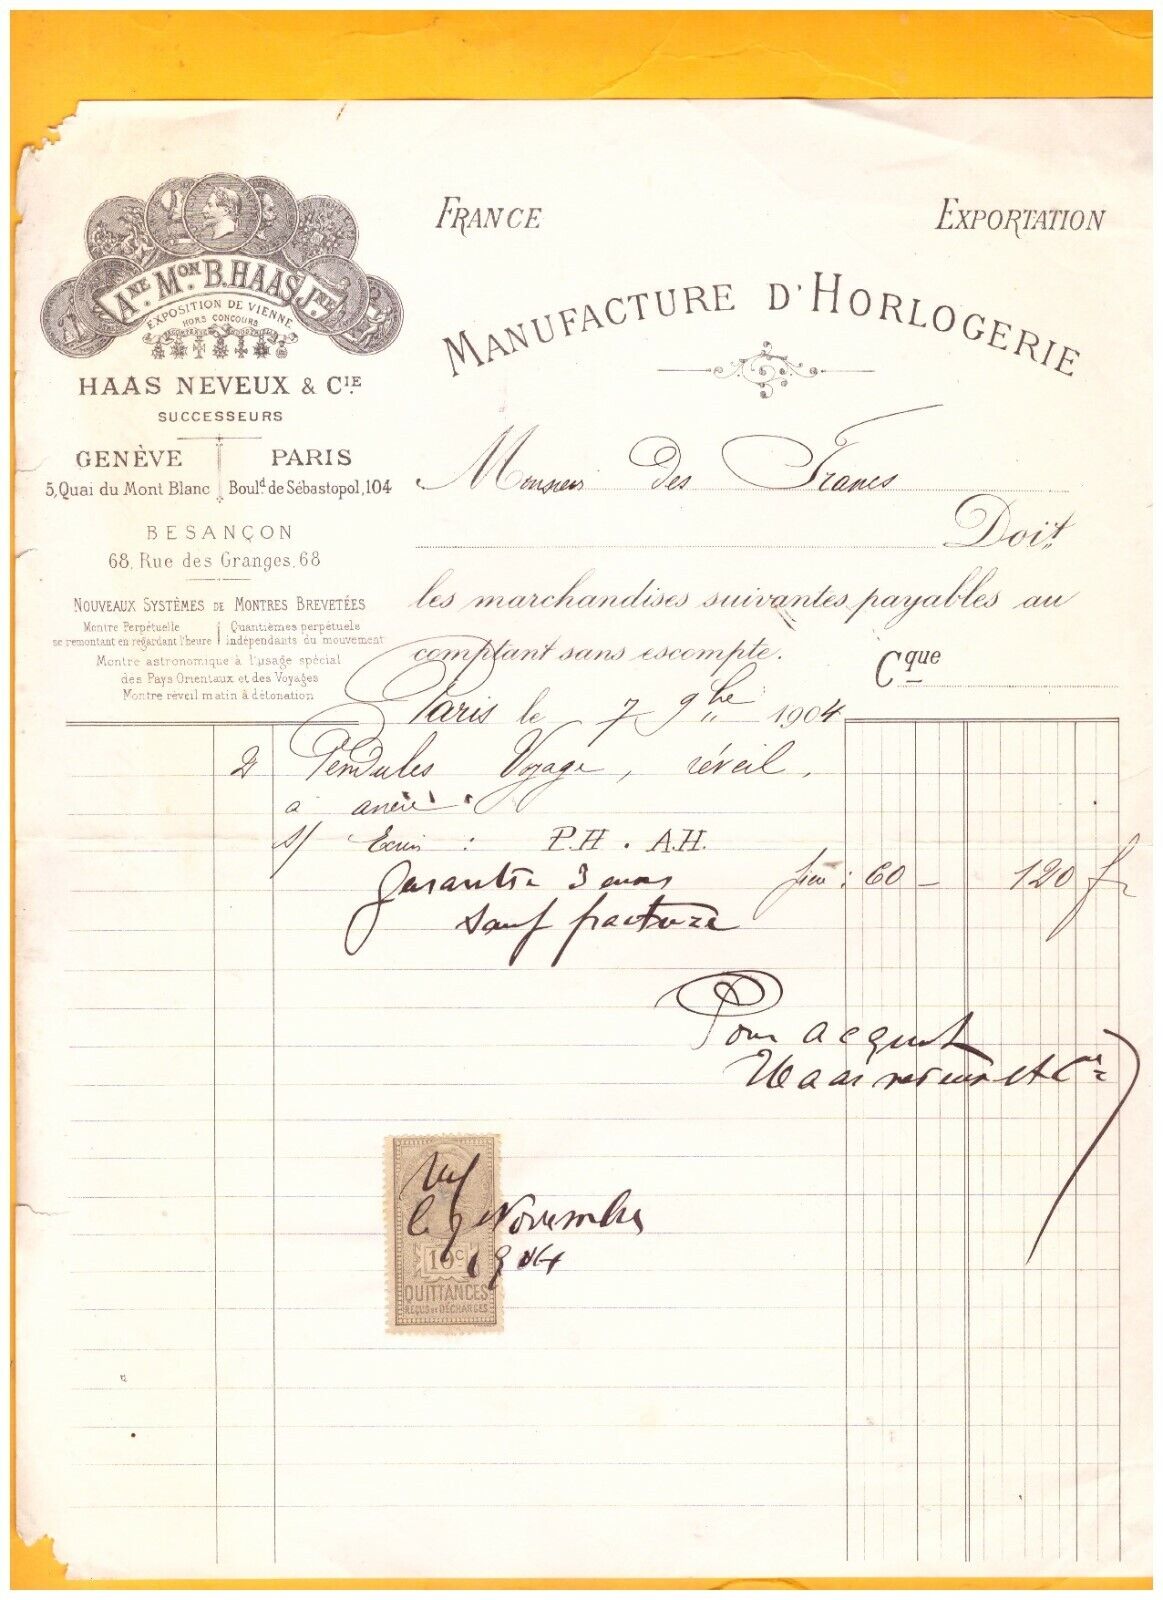 FRANCE
EXPORTATION
ANE. MON. B. HAAS JNE.
EXPOSITION DE VIENNE
HORS CONCOURS
MANUFACTURE D'HORLOGERIE
HAAS NEVEUX & CIE.
SUCCESSEURS
GENÈVE
PARIS
5, Quai du Mont Blanc
Boul.d de Sébastopol, 104
BESANÇON
68, Rue des Granges, 68
NOUVEAUX SYSTÈMES DE MONTRES BREVETÉES
Montre Perpétuelle
se remontant en regardant l'heure
Quantièmes perpétuels
indépendants du mouvement
Montre astronomique à l'usage spécial
des Pays Orientaux et des Voyages
Montre réveil matin à détonation
Monsieur des Francs
Doit
les marchandises suivantes, payables au
comptant sans escompte.
Cque
Paris le 7 9bre 1904
2 Pendules Voyage, réveil,
à
s/ Ecrin : P.H. A.H.
garantie 3 : 60 – 120 fr
sauf fracture
Pour acquit
Haas neveux et Cie
le 9 Novembre
1904
10c
QUITTANCES
REÇUS ET DÉCHARGES